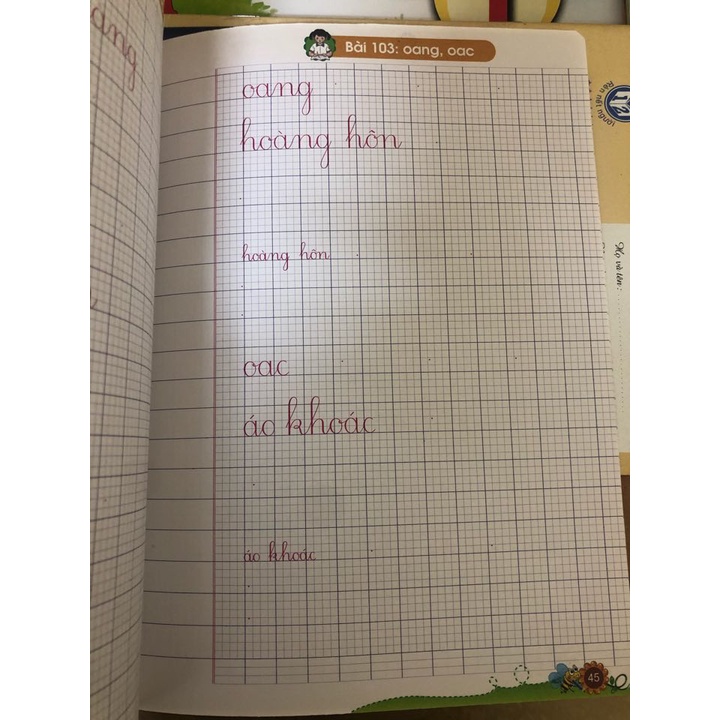 Bài 103: oang, oac
ang
oang
hoàng hôn
hoàng hôn
oac
áo khoác
áo khoác
45
Họ và tên: